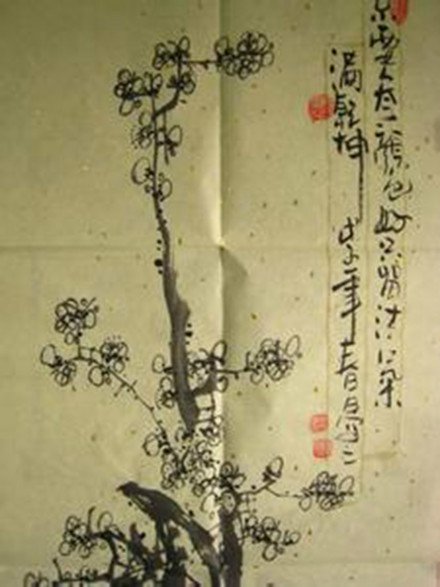 不要人夸颜色好只留清气
满乾坤 戊子年春